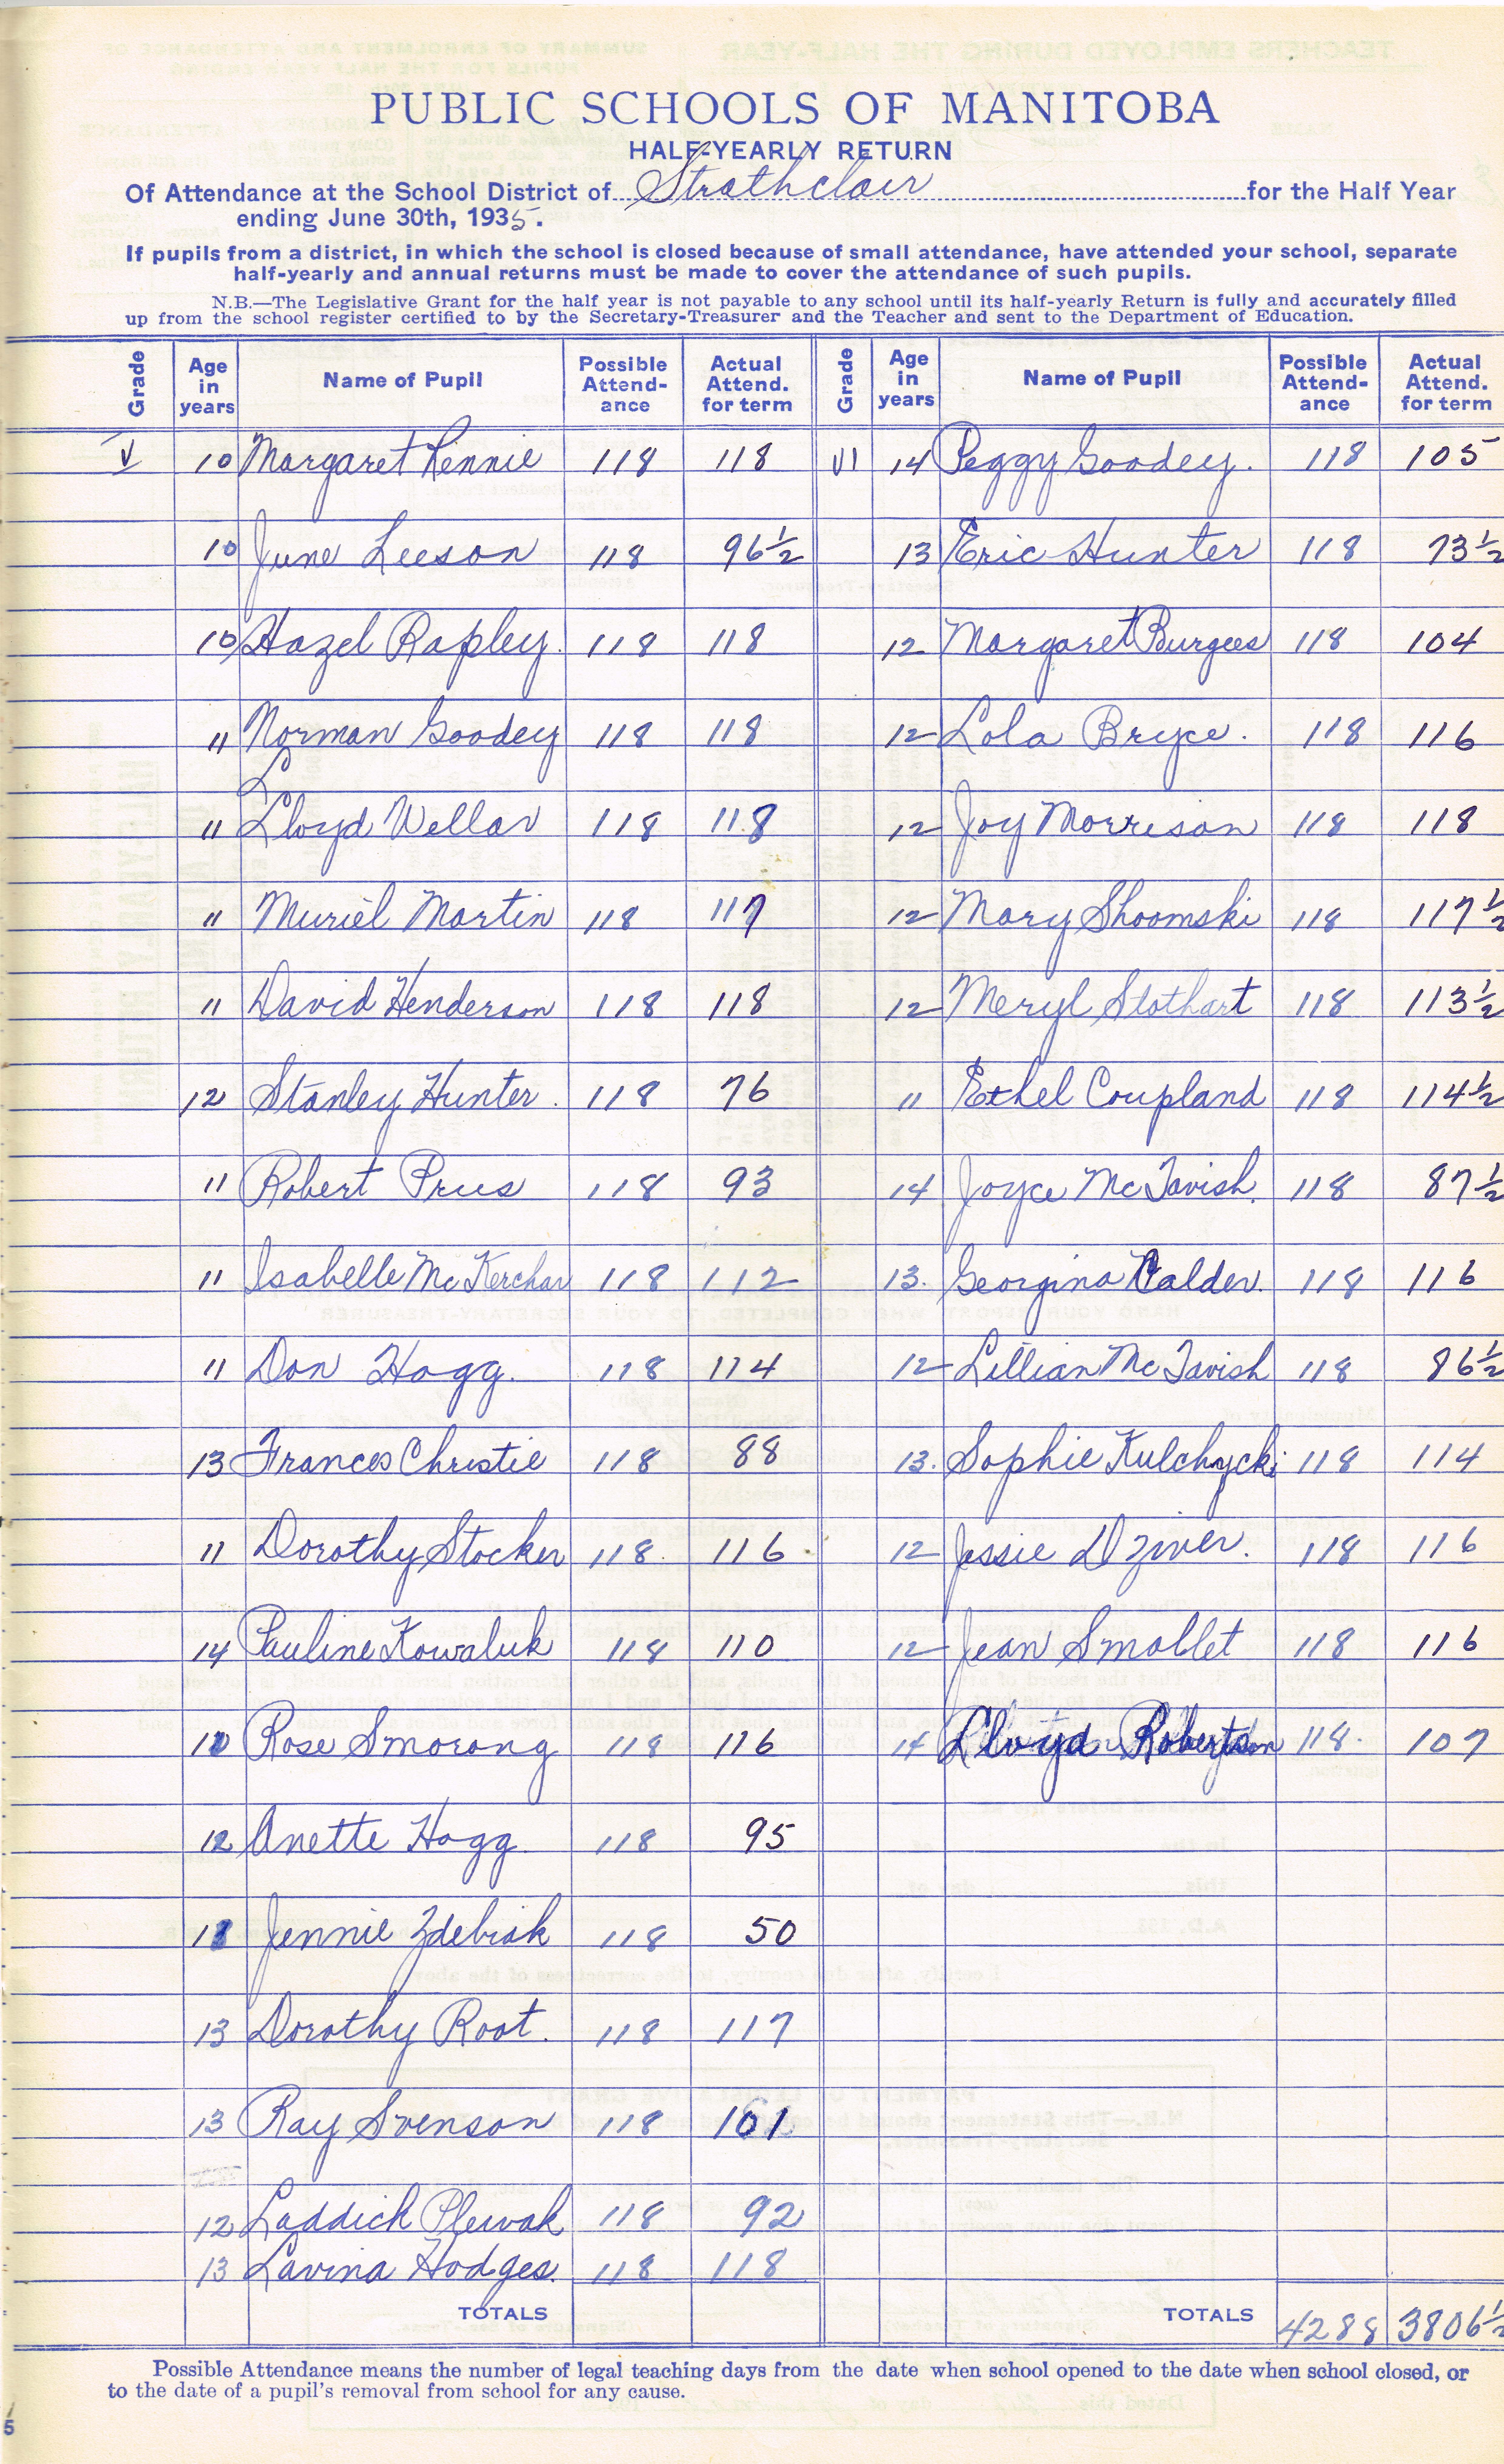 PUBLIC SCHOOLS OF MANITOBA
HALF-YEARLY RETURN
Of Attendance at the School District of Strathclair for the Half Year
ending June 30th, 1935.
If pupils from a district, in which the school is closed because of small attendance, have attended your school, separate
half-yearly and annual returns must be made to cover the attendance of such pupils.
N.B.—The Legislative Grant for the half year is not payable to any school until its half-yearly Return is fully and accurately filled
up from the school register certified to by the Secretary-Treasurer and the Teacher and sent to the Department of Education.
Grade Age in years Name of Pupil Possible Attend-ance Actual Attend. for term Grade Age in years Name of Pupil Possible Attend-ance Actual Attend. for term
V 10 Margaret Rennie 118 118 VI 14 Peggy Goodey. 118 105
10 June Leeson 118 96½ 13 Eric Hunter 118 73½
10 Hazel Rapley. 118 118 12 Margaret Burgess 118 104
11 Norman Goodey 118 118 12 Lola Bryce. 118 116
11 Lloyd Wellar 118 118 12 Joy Morrison 118 118
11 Muriel Martin 118 117 12 Mary Shoomski 118 117½
11 David Henderson 118 118 12 Meryl Stothart 118 113½
12 Stanley Hunter. 118 76 11 Ethel Coupland 118 114½
11 Robert Prus 118 93 14 Joyce McTavish. 118 87½
11 Isabelle McKerchar 118 112 13. Georgina Calder. 118 116
11 Don Hogg. 118 114 12 Lillian McTavish 118 86½
13 Frances Christie 118 88 13. Sophie Kulchycki 118 114
11 Dorothy Stocker 118. 116 12 Jessie Dziver. 118 116
14 Pauline Kowaluk 118 110 12 Jean Smollet 118 116
Rose Smorong 118 116 14 Lloyd Robertson 118. 107
12 Anette Hogg. 118 95
Jennie Zdebiak 118 50
13 Dorothy Root. 118 117
13 Ray Svenson 118 101
12 Laddick Plewak 118 92
13 Lavina Hodges. 118 118
TOTALS TOTALS 4288 3806½
Possible Attendance means the number of legal teaching days from the date when school opened to the date when school closed, or
to the date of a pupil's removal from school for any cause.
5